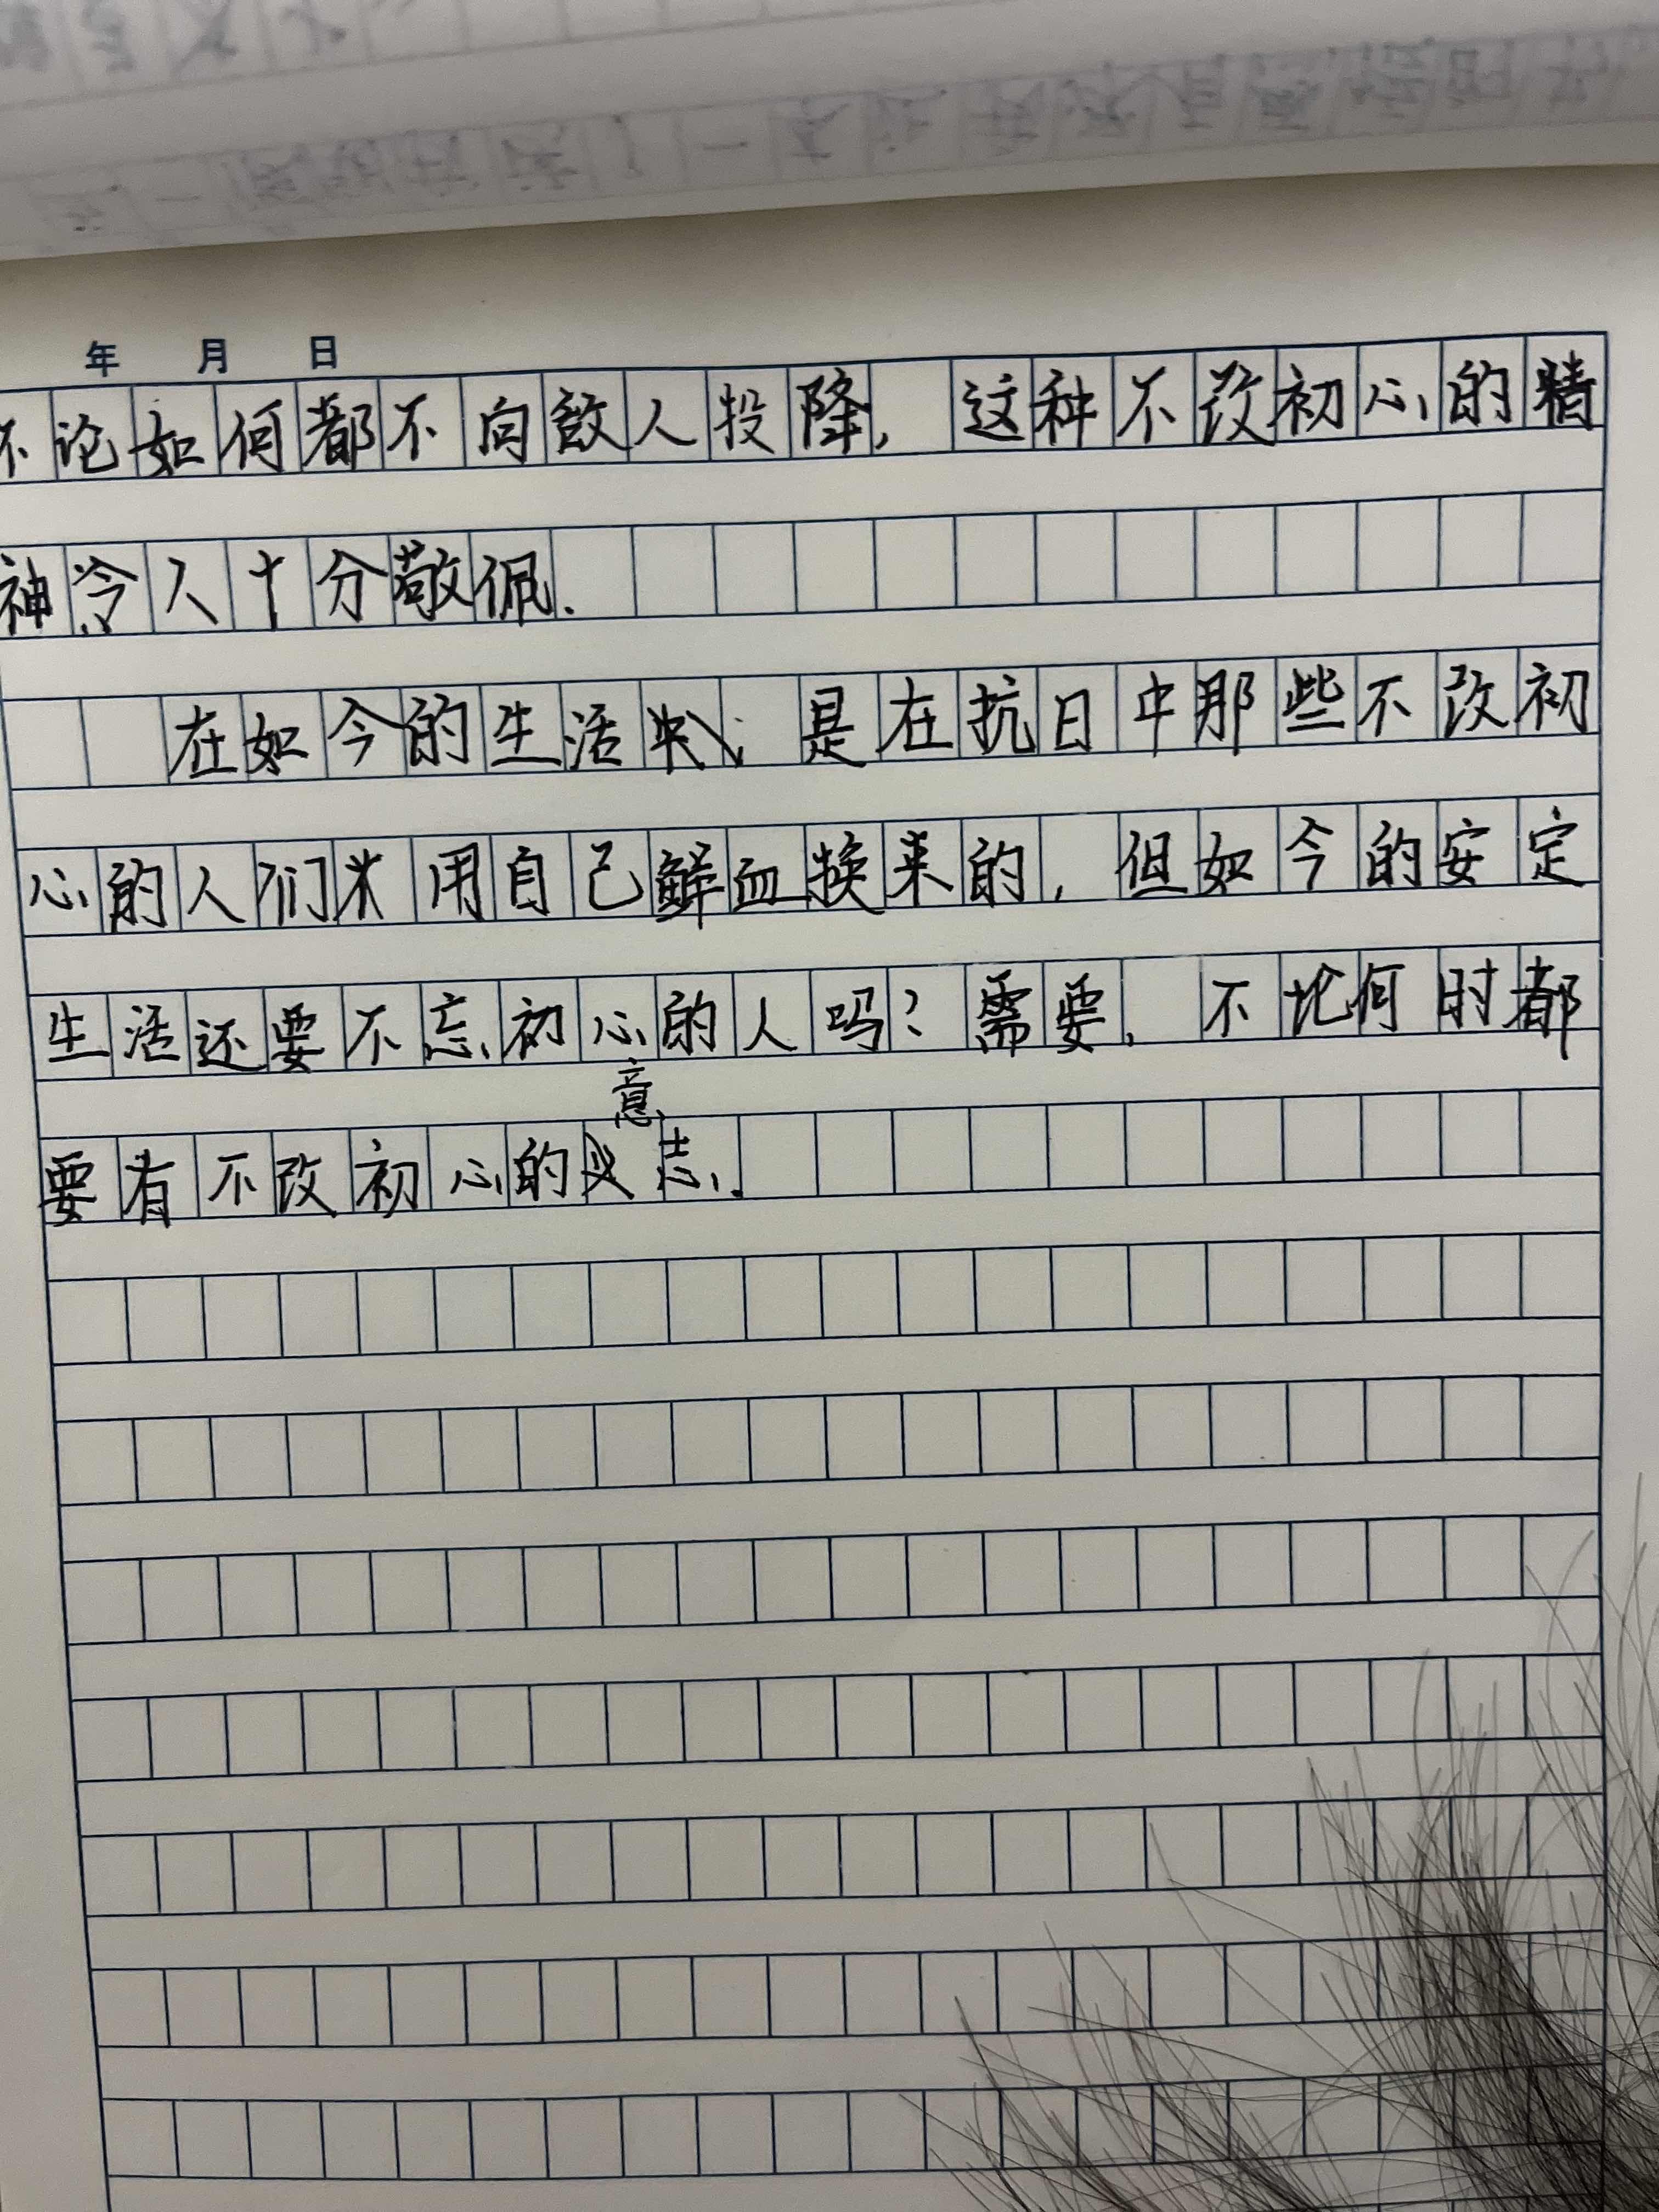 年 月 日
不论如何都不向敌人投降，这种不改初心的精
神令人十分敬佩.
在如今的生活 是在抗日中那些不改初
心的人们 用自己鲜血换来的，但如今的安定
生活还要不忘初心的人吗？需要，不论何时都
要有不改初心的意志.